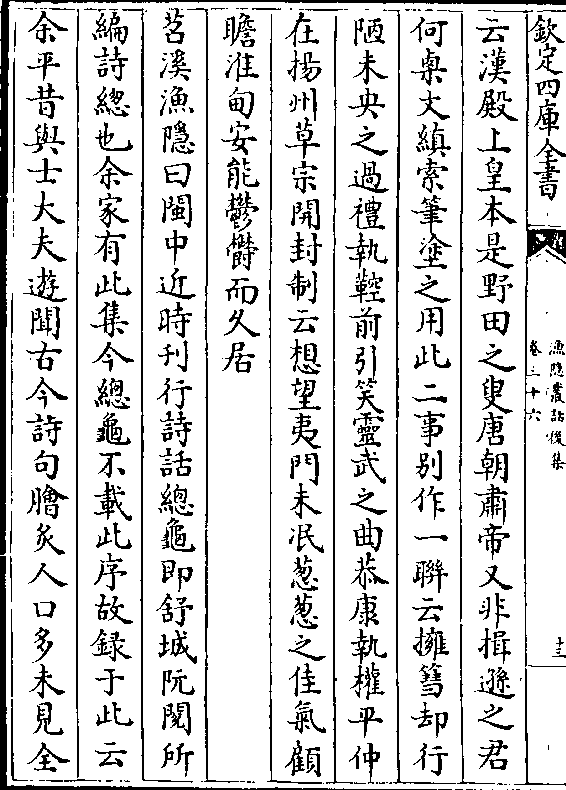 欽定四庫全書
漁隱叢話後集
卷三十六
十三
云漢殿上皇本是野田之叟唐朝肅帝又非揖遜之君
何㮚文縝索筆塗之用此二事别作一聯云擁篲却行
陋未央之過禮執鞚前引笑靈武之曲恭康執權平仲
在揚州草宗開封制云想望夷門未泯葱葱之佳氣顧
瞻淮甸安能鬱鬱而久居
苕溪漁隱曰閩中近時刋行詩話總龜即舒城阮閱所
編詩緫也余家有此集今總龜不載此序故録于此云
余平昔與士大夫遊聞古今詩句膾炙人口多未見全